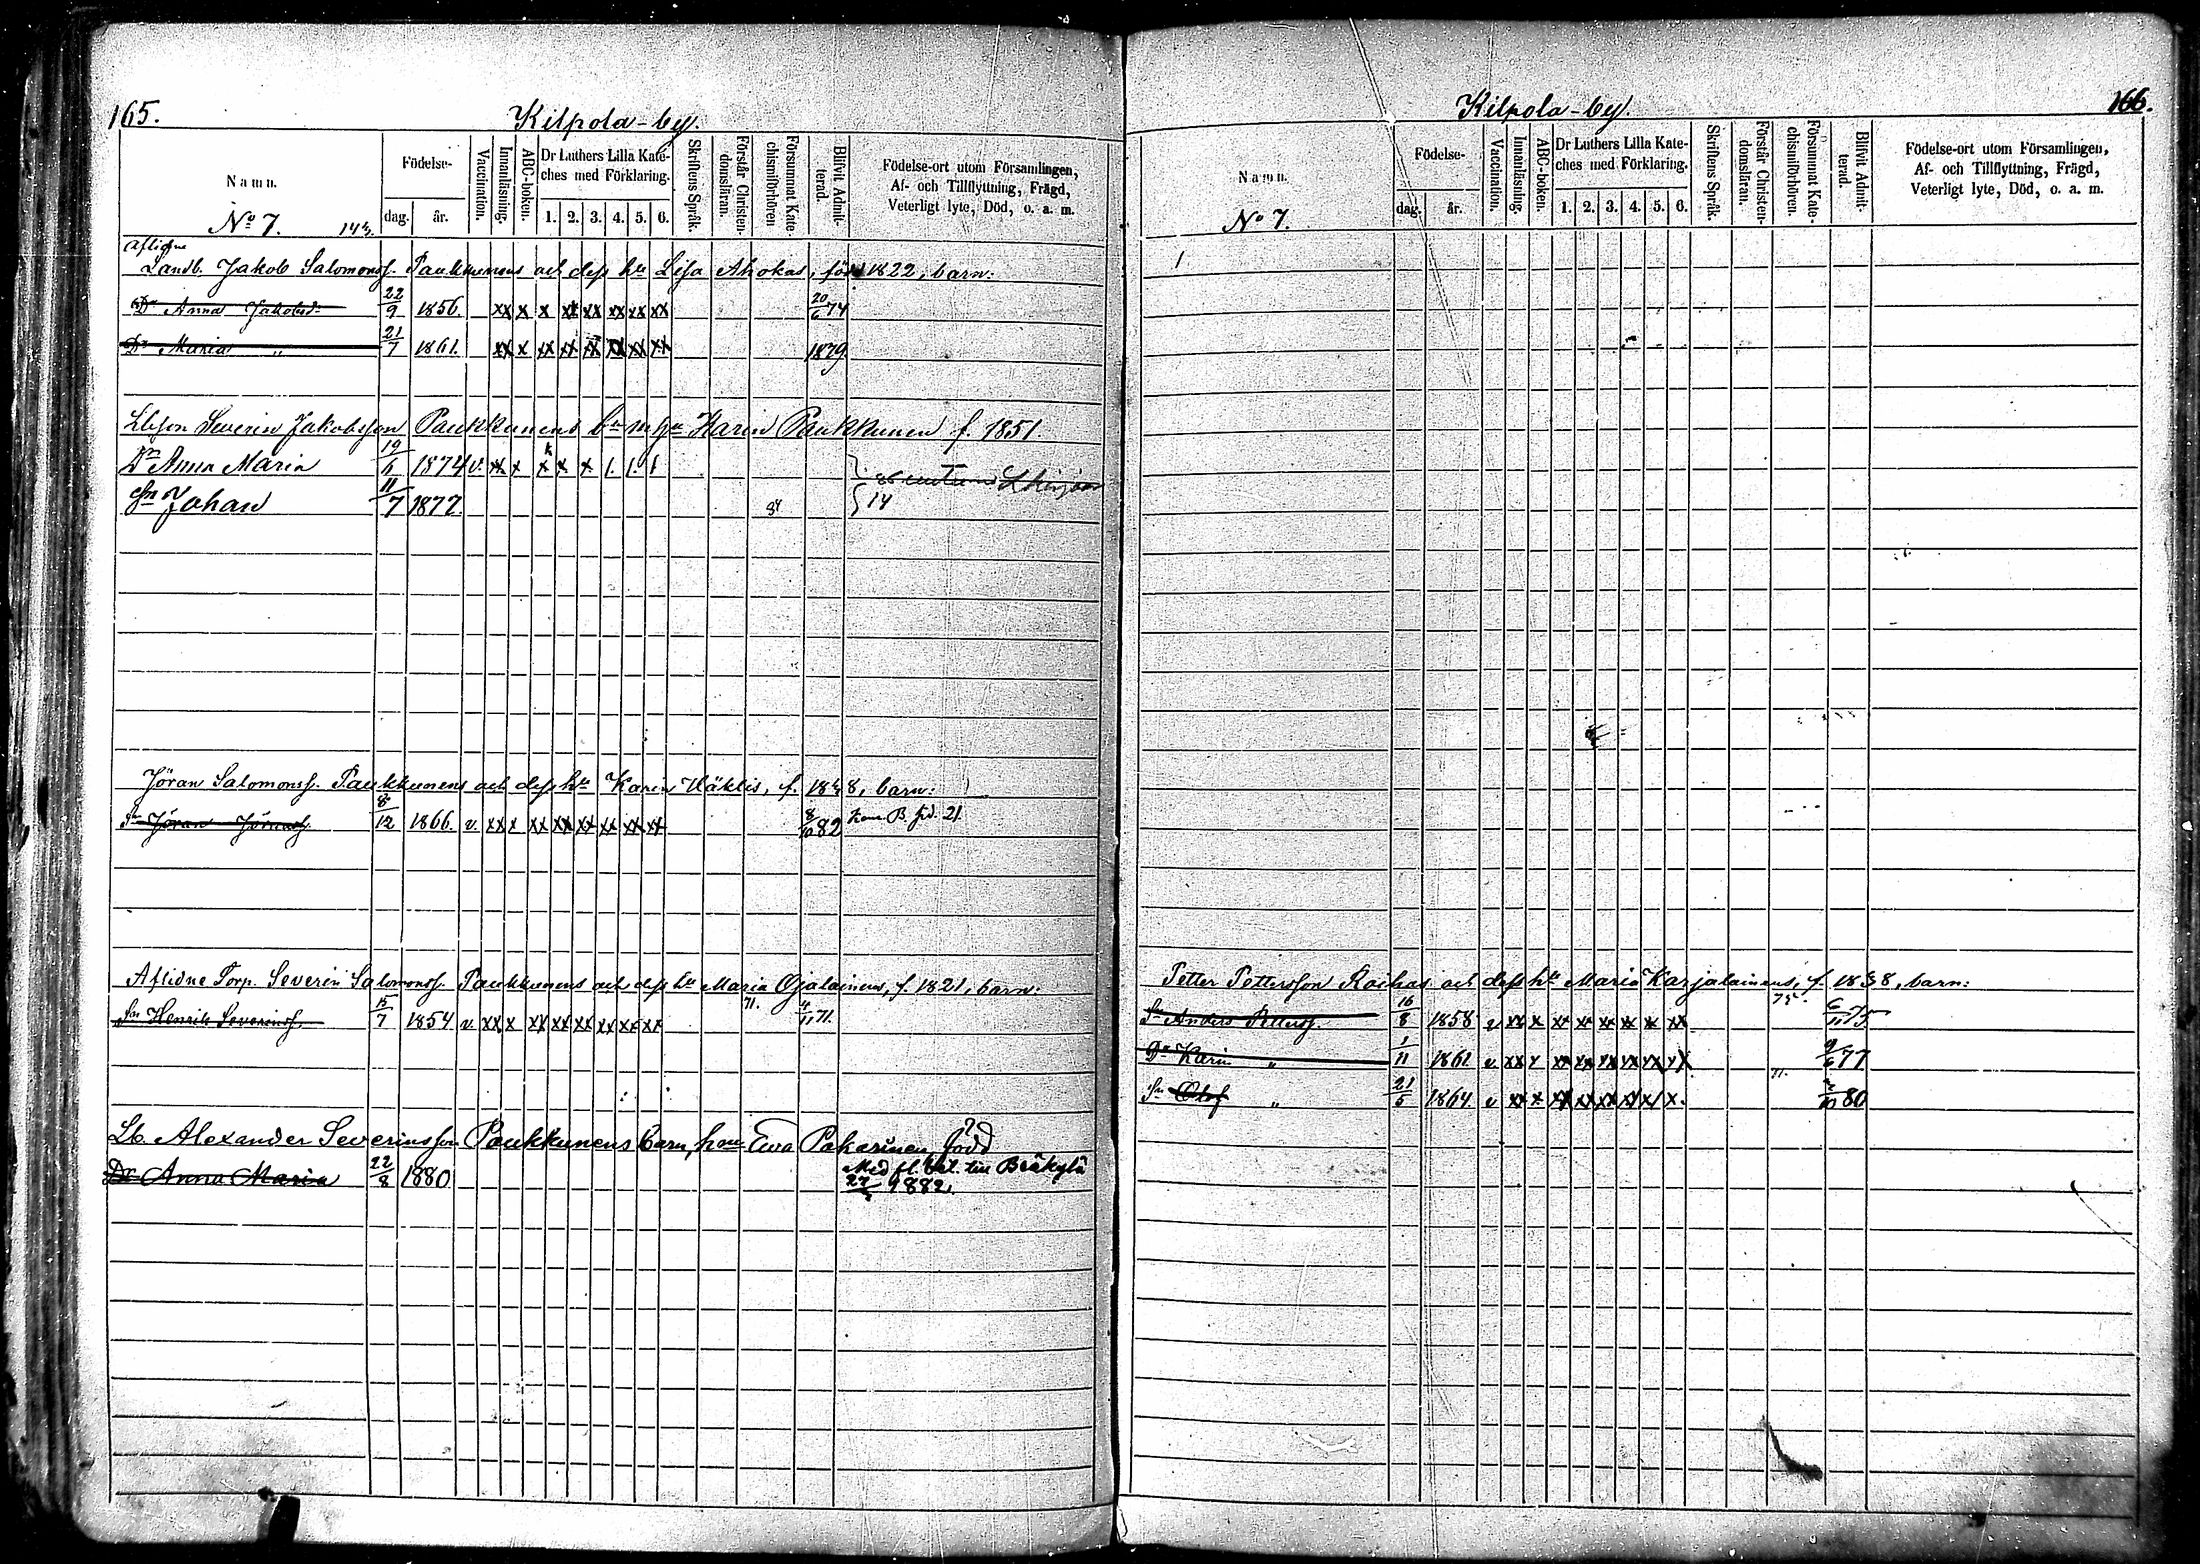 165.
Kilpola-by.
Namn.
Födelse-
dag.
år.
Vaccination.
Innanläsning.
ABC-boken.
Dr Luthers Lilla Kate-
ches med Förklaring.
1. 2. 3. 4. 5. 6.
Skriftens Språk.
Förstår Christen-
domsläran.
Försummat Kate-
chismiförhören
Blifvit Admit-
terad.
Födelse-ort utom Församlingen,
Af- och Tillflyttning, Frägd,
Veterligt lyte, Död, o. a. m.
No 7.
Aflidne
Landb. Jakob Salomonss. Paukkunens och dess hu Lisa Ahokas, född 1822, barn:
Dr Anna Jakobsd. 22/9 1856. xx x x xx xx xx xx xx 20/6 74
Dr Maria " 21/7 1861. xx x xx xx xx xx xx xx 1879
Lbson Severin Jakobsson Paukkunens Karin Paukkunen f. 1851.
Dr Anna Maria 19/6 1874 v. xx x x x x
Sn Johan 11/7 1877 84 14
Jöran Salomonss. Paukkunens och dess hu Karin Häklis, f. barn:
Sn Jöran Jöranss. 8/12 1866. v. xx x xx xx xx xx xx xx 8/10 82 Kom. B. sid. 21
Aflidne Torp. Severin Salomonss. Paukkunens och dess hu Maria Ojalainens, f. 1821, barn:
Sn Henrik Severinss. 15/7 1854 v. xx x xx xx xx xx xx xx 71. 4/11 71.
Lb. Alexander Severinsson Paukkunens barn, hon Ewa Pakarinen född ?
Dr Anna Maria 22/8 1880 Med fl. bet. till Bräkylä
1882.
Kilpola-by.
166.
Namn.
Födelse-
dag.
år.
Vaccination.
Innanläsning.
ABC-boken.
Dr Luthers Lilla Kate-
ches med Förklaring.
1. 2. 3. 4. 5. 6.
Skriftens Språk.
Förstår Christen-
domsläran.
Försummat Kate-
chismiförhören.
Blifvit Admit-
terad.
Födelse-ort utom Församlingen,
Af- och Tillflyttning, Frägd,
Veterligt lyte, Död, o. a. m.
No 7.
Petter Pettersson Roihas och dess hu Maria Karjalainens, f. barn:
Sn Anders 16/8 1858 v xx x xx xx xx xx x xx 75. 6/11 75
Dr Karin " 1/11 1861. v. xx x xx xx xx xx xx xx 9/6 77
Sn Olof " 21/5 1864. v xx x xx xx xx x/ x/ x. 71. 80